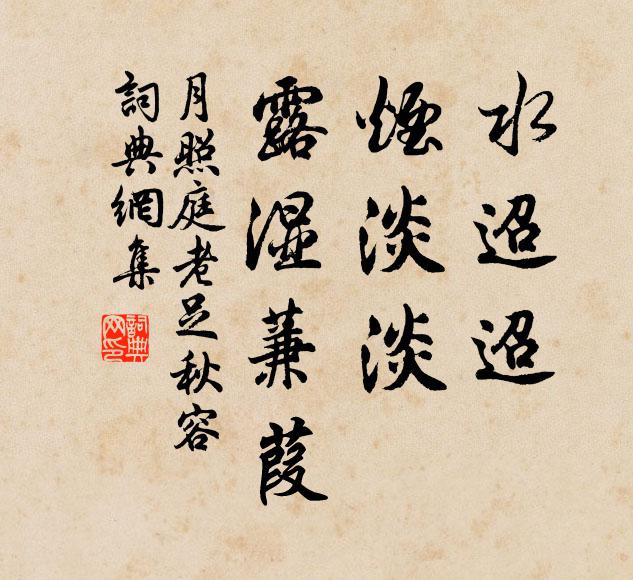 水迢迢
煙淡淡
露濕蒹葭
月照庭老足秋容
詞典網集
詞典
网印